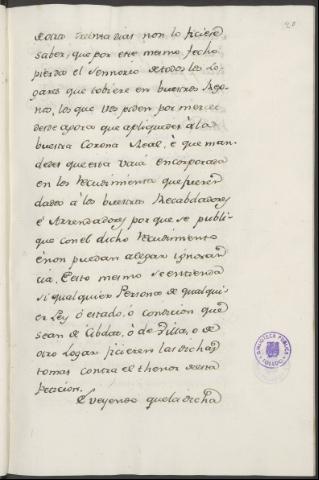 20
de dos treinta dias non lo ficiere
saber, que por este mesmo fecho
pierda el Sennorio de todos los Lo-
gares que tobiere en buestros Reg-
nos, los que vos piden por merced
desde agora que apliquedes à la
buestra Corona Real, è que man-
dedes que esta vaia encorporada
en los Recudimientos que fueren
dados à los buestros Recabdadores
è Arrendadores por que se publi-
que con el dicho Recudimiento
è non puedan alegar ignoran-
cia. E esto mesmo se entienda
si qualquier Persona de qualqui-
er Ley ó estado, ó condicion que
sean de Cibdat, ó de Villa, o de
otro Logar ficieren las dichas
tomas contra el thenor de esta
Peticion.
E veyendo que la dicha
BIBLIOTECA PÚBLICA
TOLEDO